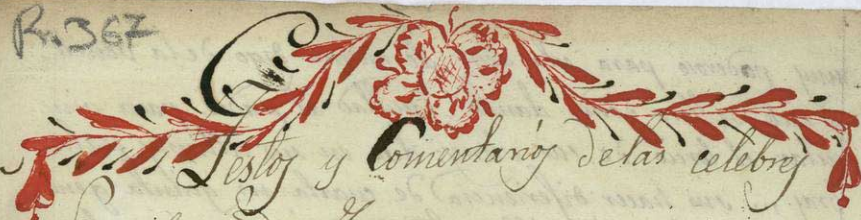 Rs. 367
Testos y Comentarios de las celebres